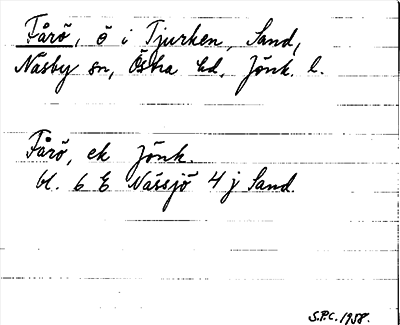 Fårö, ö i Tjurken, Sand,
Näsby sn, Östra hd, Jönk. l.
Fårö, ek Jönk.
bl. 6 E Nässjö 4 j Sand.
S.P.C. 1958.